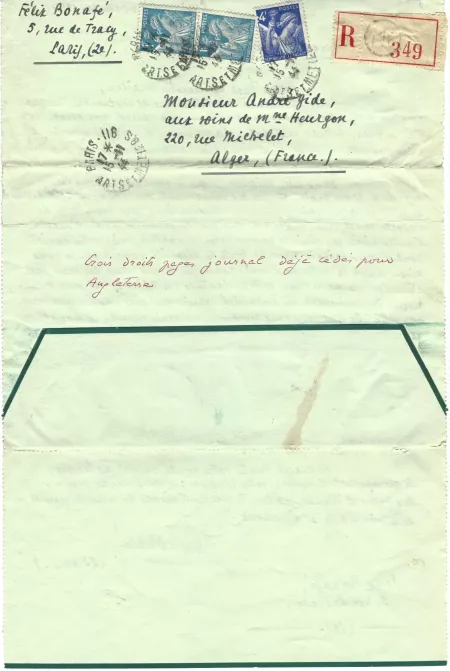 Félix Bonafé,
5, rue de Tracy,
Paris, (2e).
POSTES
R
349
Monsieur André Gide,
aux soins de Mme Heurgon,
220, rue Michelet,
Alger, (France.).
PARIS-118
17 *
15-11
44
Crois droits pages journal déjà cédés pour
Angleterre